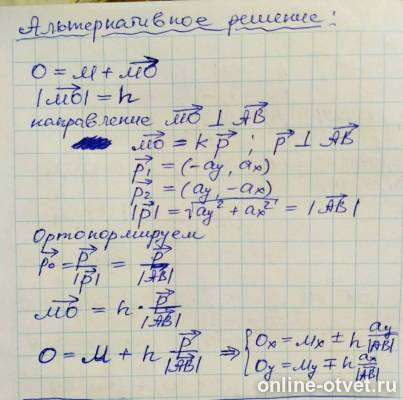 Альтернативное решение:
O = M + MO⃗
|MO⃗| = h
направление MO⃗ ⊥ AB⃗
MO⃗ = k p⃗ ; p⃗ ⊥ AB⃗
p⃗₁ = (-ay, ax)
p⃗₂ = (ay, -ax)
|p⃗| = √(ay² + ax²) = |AB⃗|
Ортонормируем
p⃗₀ = p⃗/|p⃗| = p⃗/|AB⃗|
MO⃗ = h · p⃗/|AB⃗|
O = M + h p⃗/|AB⃗| ⇒ { Ox = Mx ± h ay/|AB⃗|
Oy = My ∓ h ax/|AB⃗|
online-otvet.ru